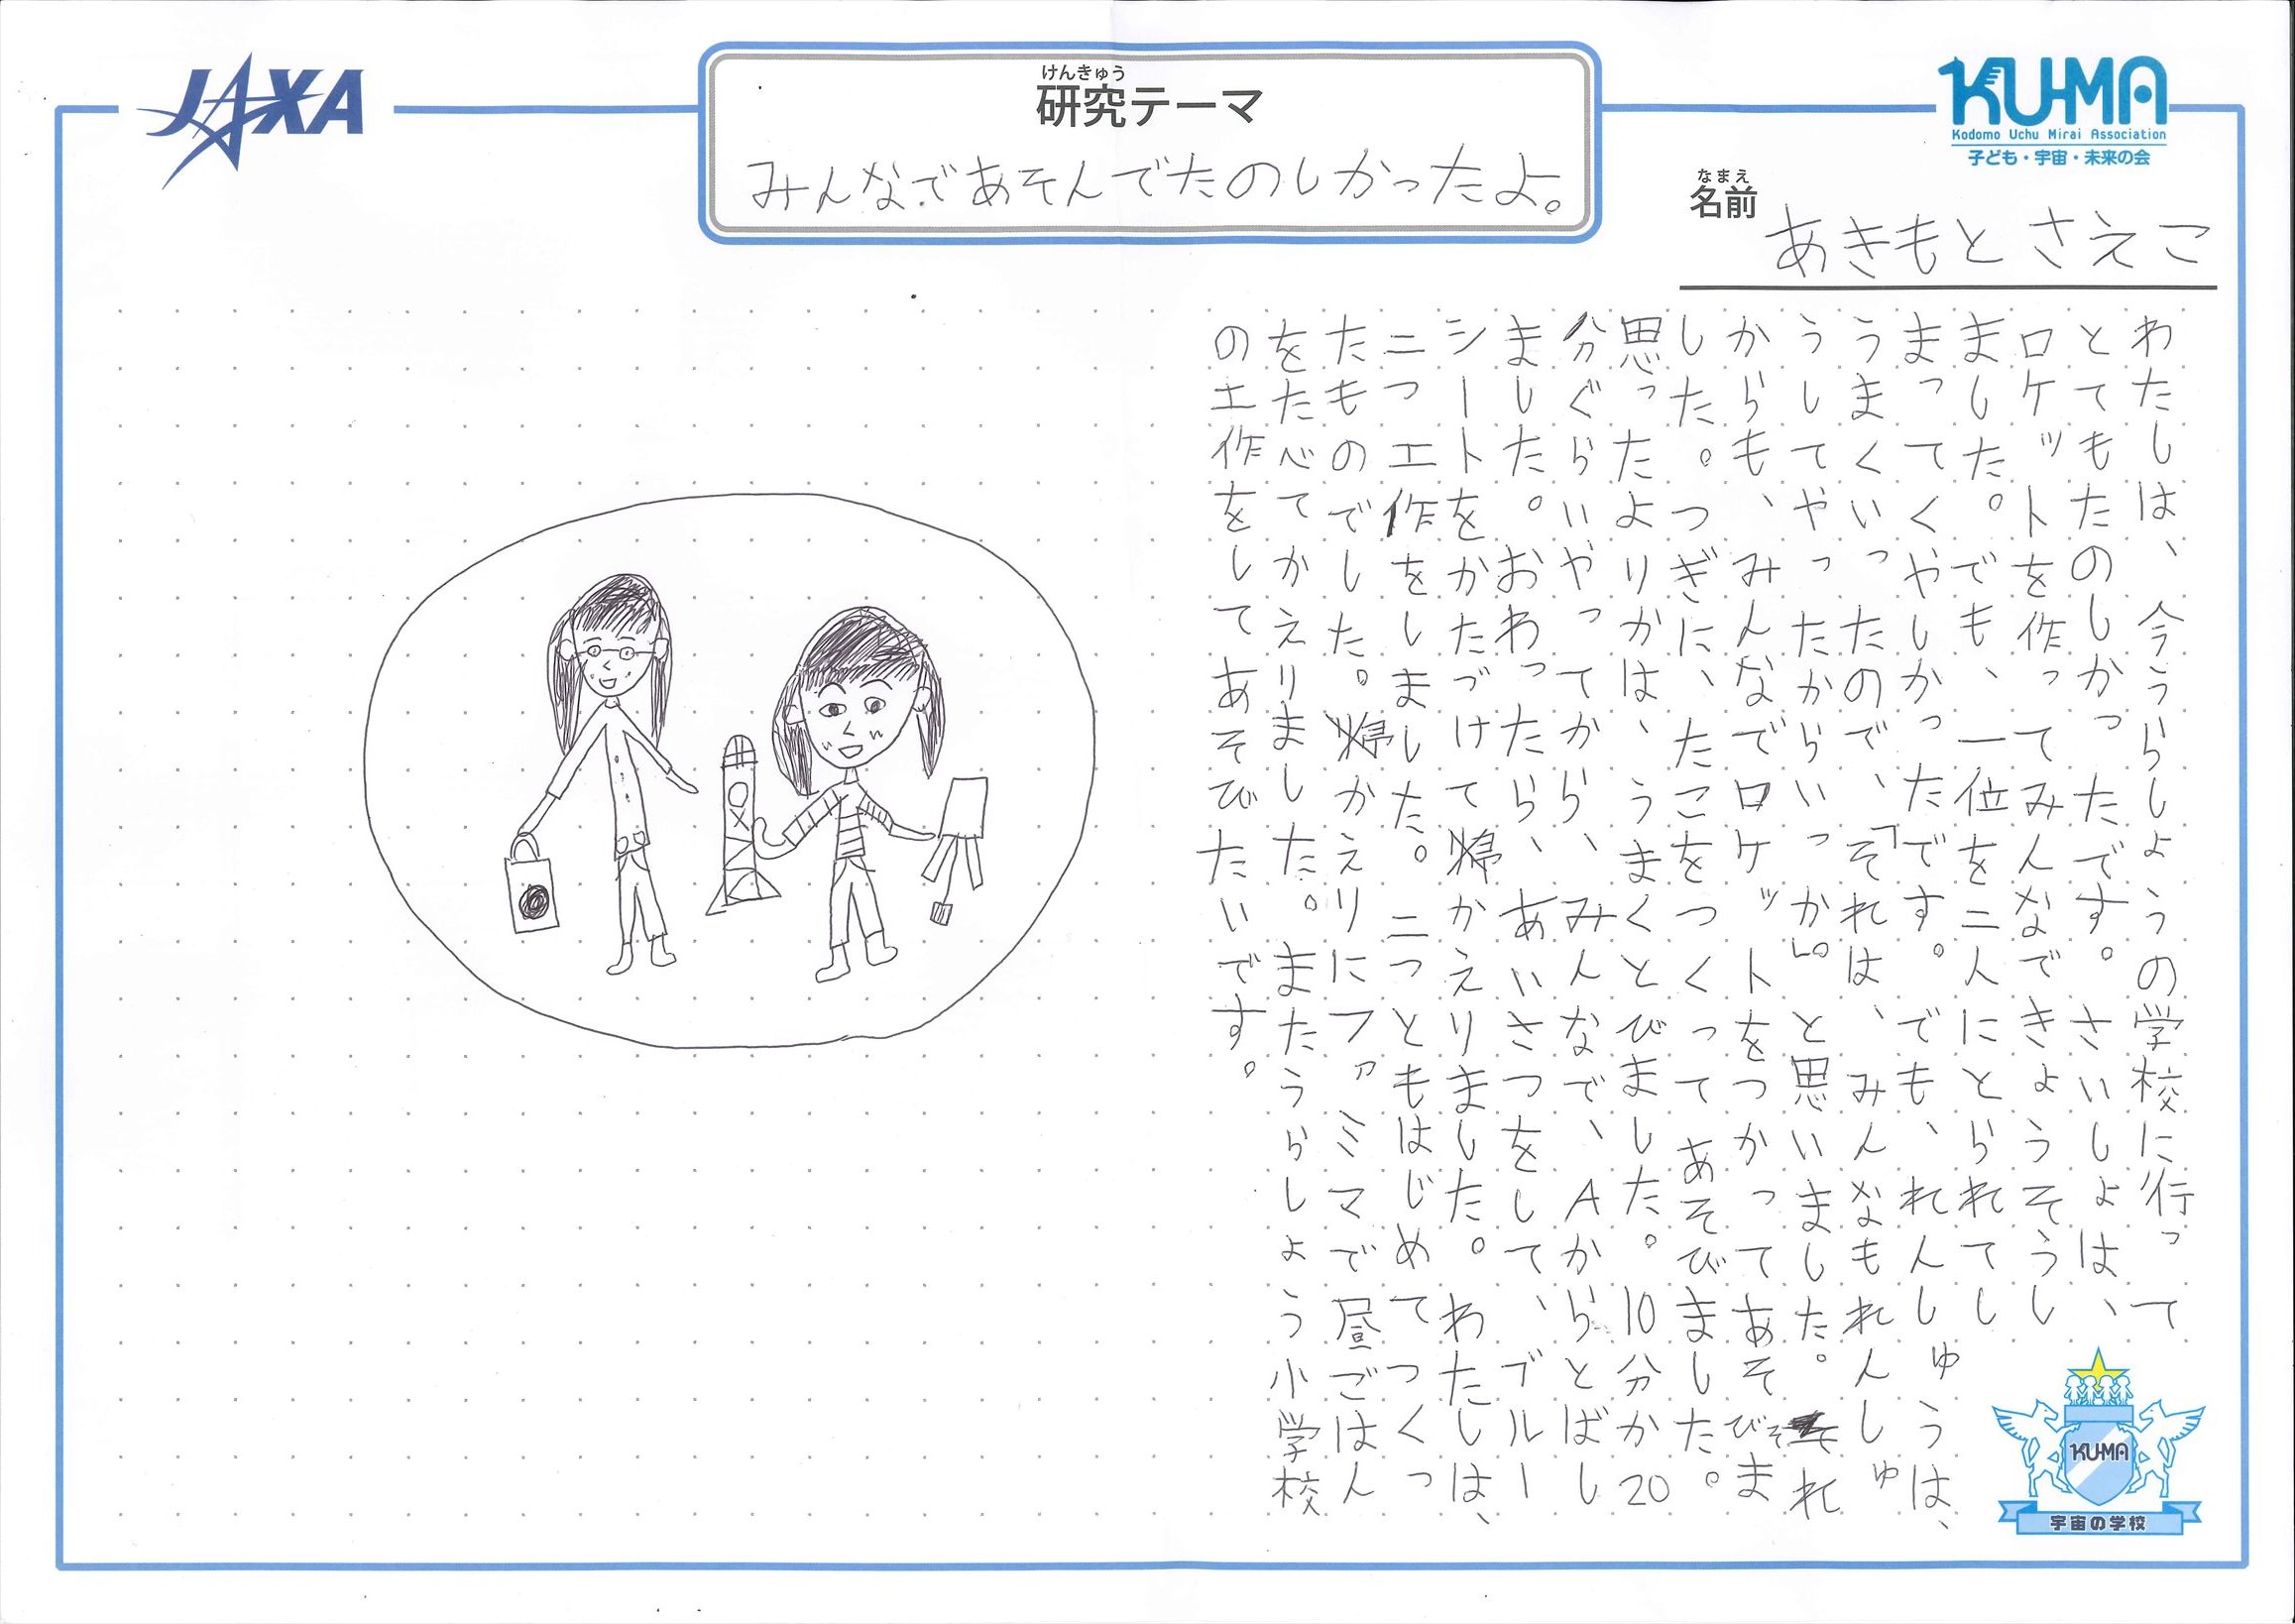 JAXA
けんきゅう
研究テーマ
みんなであそんでたのしかったよ。
KU-MA
Kodomo Uchu Mirai Association
子ども・宇宙・未来の会
なまえ
名前
あきもとさえこ
わたしは、今うらしょうの学校に行って
とてもたのしかったです。さいしょは、
ロケットを作ってみんなできょうそうし
ました。でも、一位を二人にとられてし
まってくやしかったです。でも、れんしゅうは、
うまくいったので、「それは、みんなもれんしゅ
うしてやったからいっか。」と思いました。それ
からも、みんなでロケットをつかってあそびま
した。つぎに、たこをつくってあそびました。
思ったよりかは、うまくとびました。10分か20
分ぐらいやってから、みんなで、Aからとばし
ました。おわったら、あいさつをして、ブルー
シートをかたづけて帰かえりました。わたしは、
二つ工作をしました。二つともはじめてつくっ
たものでした。帰かえりにファミマで昼ごはん
をたべてかえりました。またうらしょう小学校
の工作をしてあそびたいです。
KU-MA
宇宙の学校